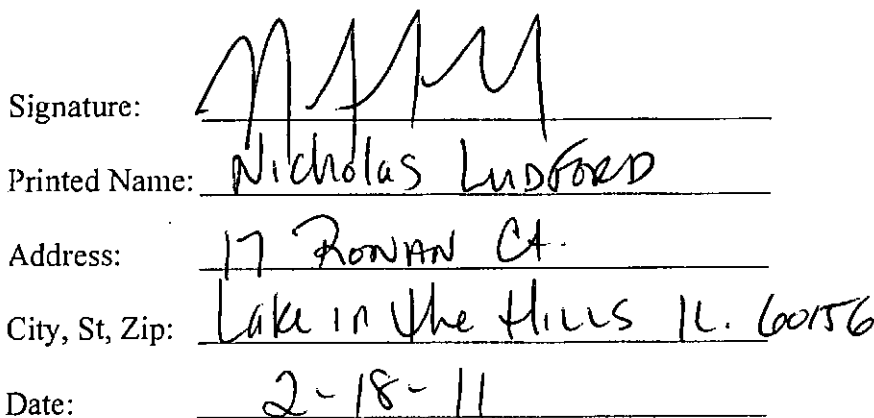 Signature:
Printed Name: Nicholas LUDFORD
Address: 17 RONAN Ct.
City, St, Zip: Lake in the Hills IL. 60156
Date: 2-18-11